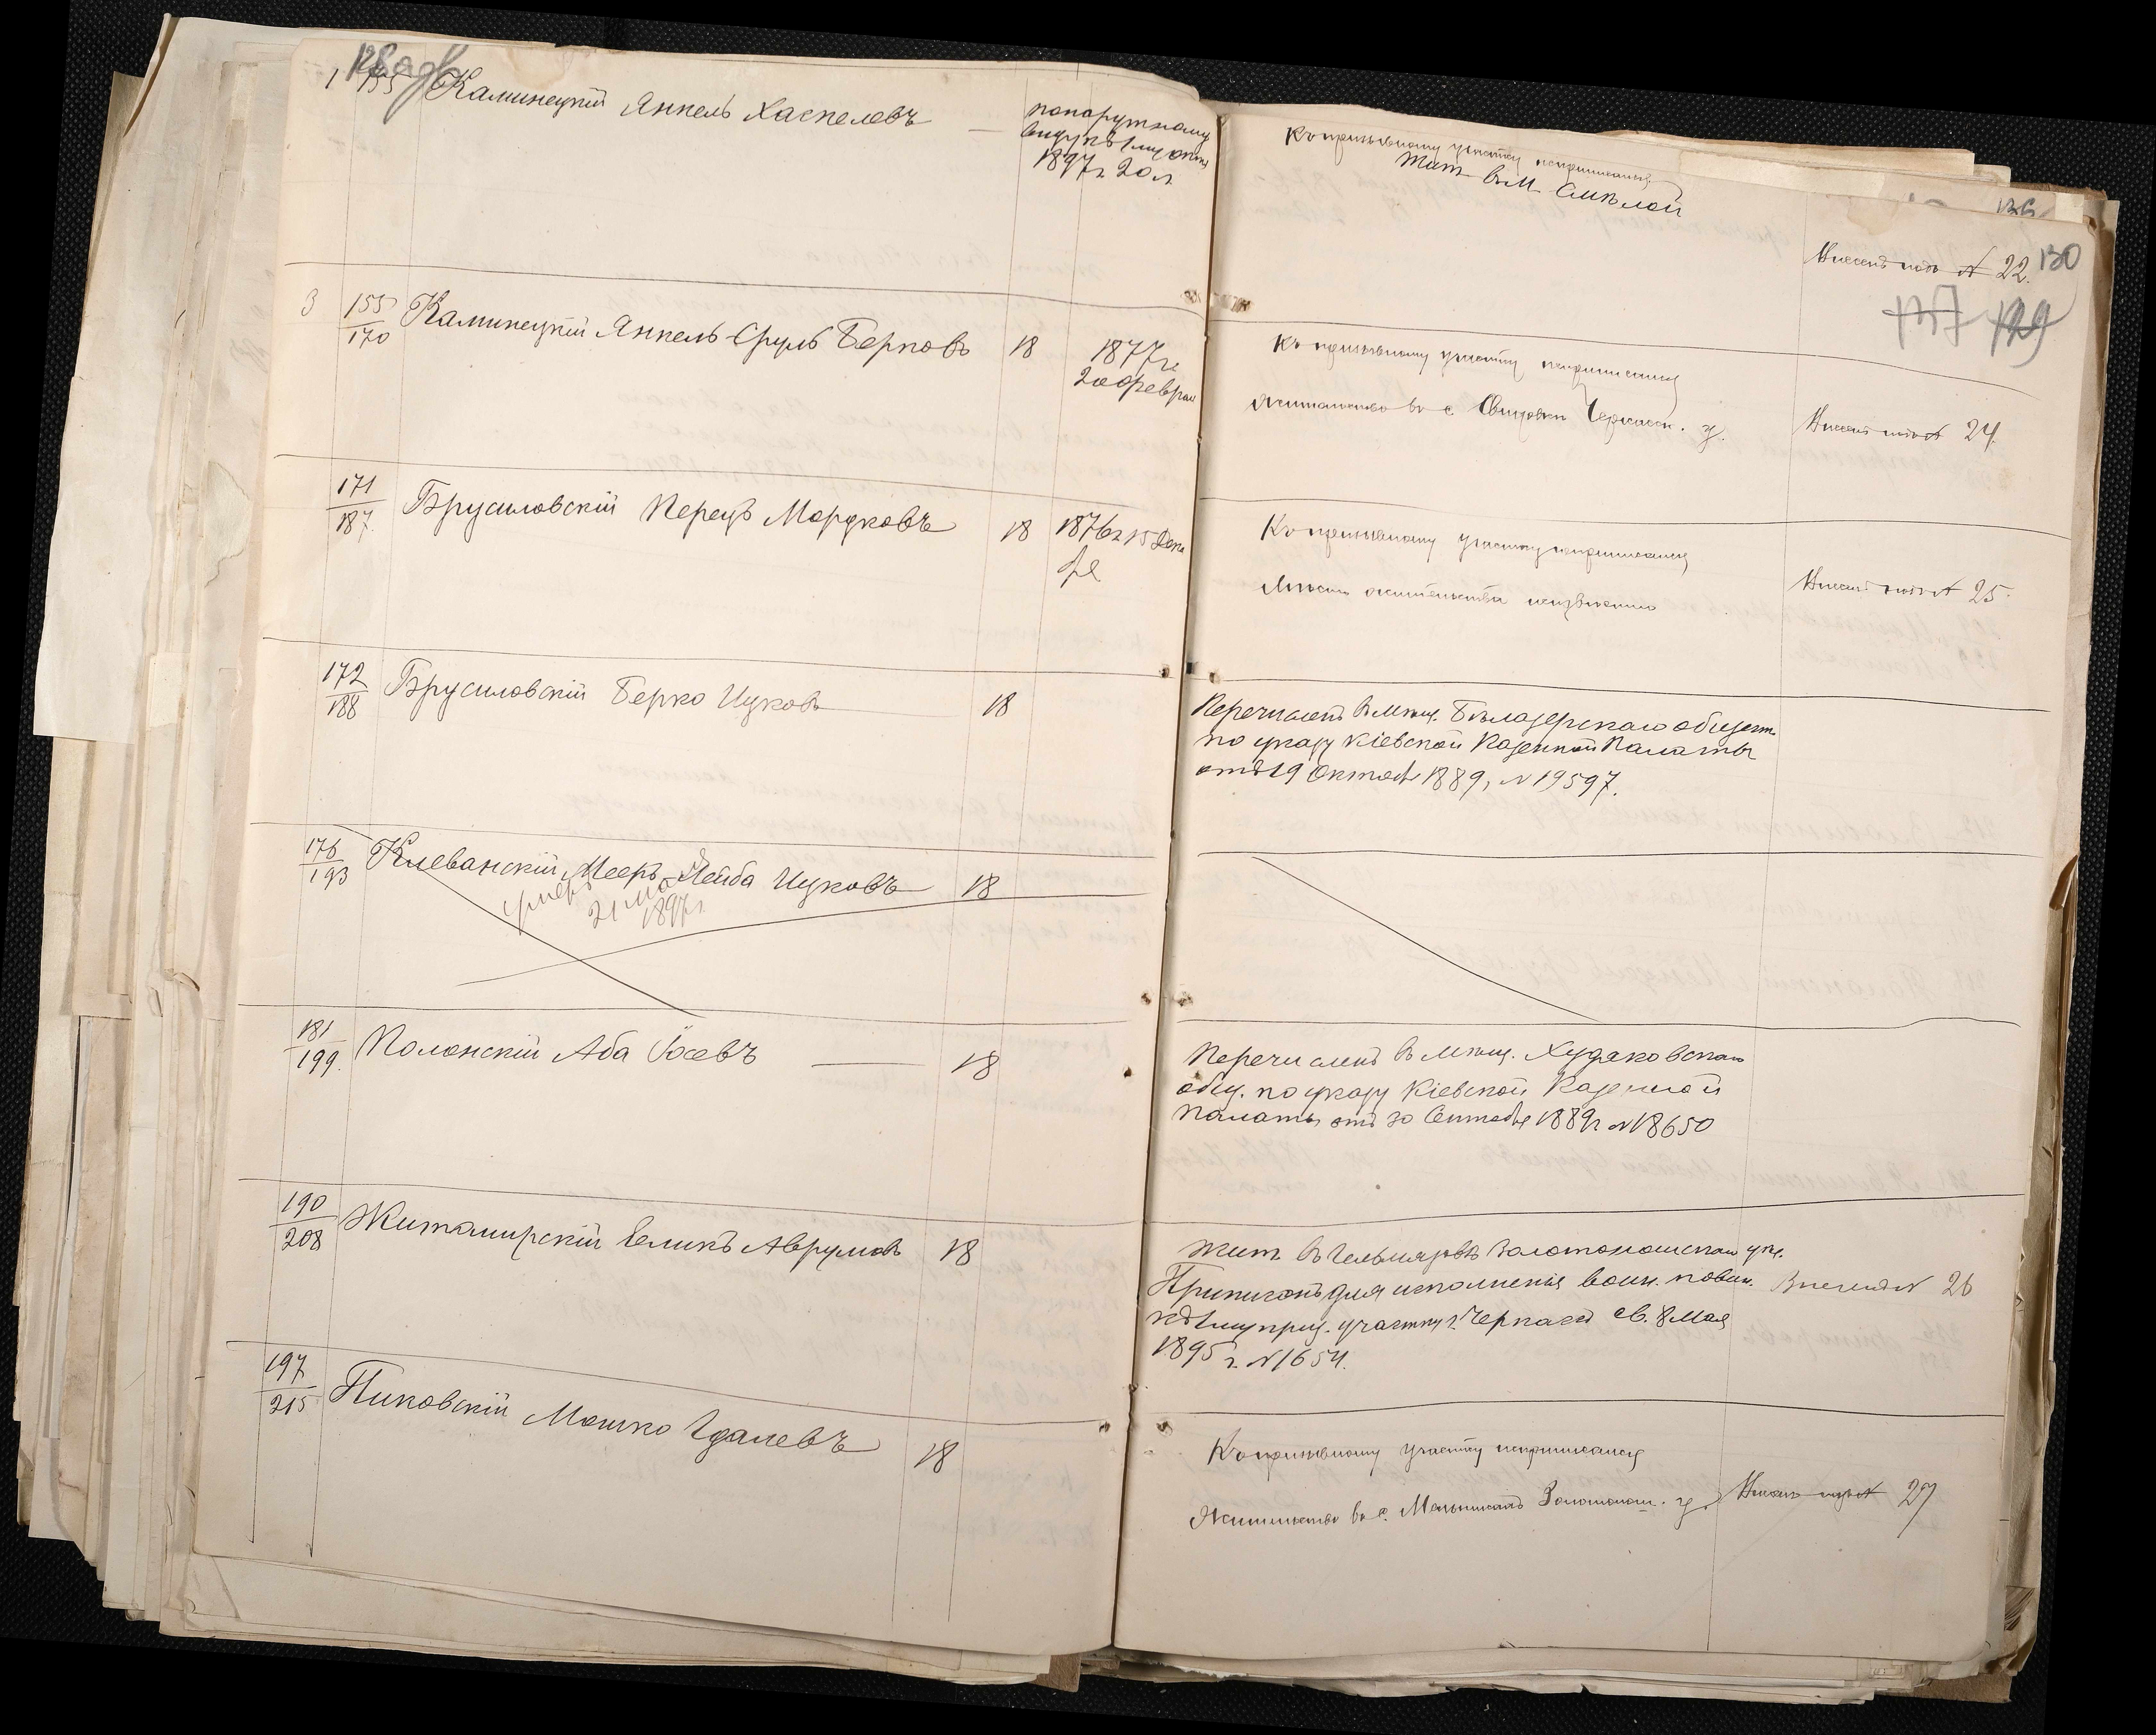 1 155 Каминецкій Янкель Хаскелевъ —
понаружному
виду къ 1му октя
1897 г. 20 л.
Къ призывному участку неприписанъ
Жит. въ м. Смѣлой
Внесенъ подъ № 22.
130
129
3 155/170 Каминецкій Янкель-Сруль Берковъ 18
1877 г.
20 феврал
Къ призывному участку неприписанъ
Жительство въ с. Свидовкѣ Черкасск. у.
Внесенъ подъ № 24.
171/187. Брусиловскій Перецъ Мордковъ 18 1876 г. 15 Дека
бр
Къ призывному участку неприписанъ
Мѣсто жительства неизвѣстно
Внесенъ подъ № 25.
172/188 Брусиловскій Берко Ицковъ 18
Перечисленъ въ мѣщ. Бѣлозерскаго обществ.
по указу Кіевской Казенной Палаты
отъ 19 Октяб 1889, № 19597.
176/193 Клеванскій Мееръ-Лейба Ицковъ 18
умеръ
21
1897 г.
181/199. Полонскій Аба Іосевъ 18
Перечисленъ въ мѣщ. Худяковскаго
общ. по указу Кіевской Казенной
Палаты отъ 30 Сентебр 1889 г. № 18650
190/208 Житомирскій Зеликъ Аврумовъ 18
Жит. въ Гельмязовѣ Золотоношскаго уѣз.
Приписанъ для исполненія воин. повин.
къ 1му приз. участку г. Черкасъ св. 8 Мая
1895 г. № 1654.
Внесенъ № 26
197/215 Пиковскій Мошко Гдалевъ 18
Къ призывному участку неприписанъ
Жительство въ с. Мельникахъ Золотонош. у.
Внесенъ подъ № 27